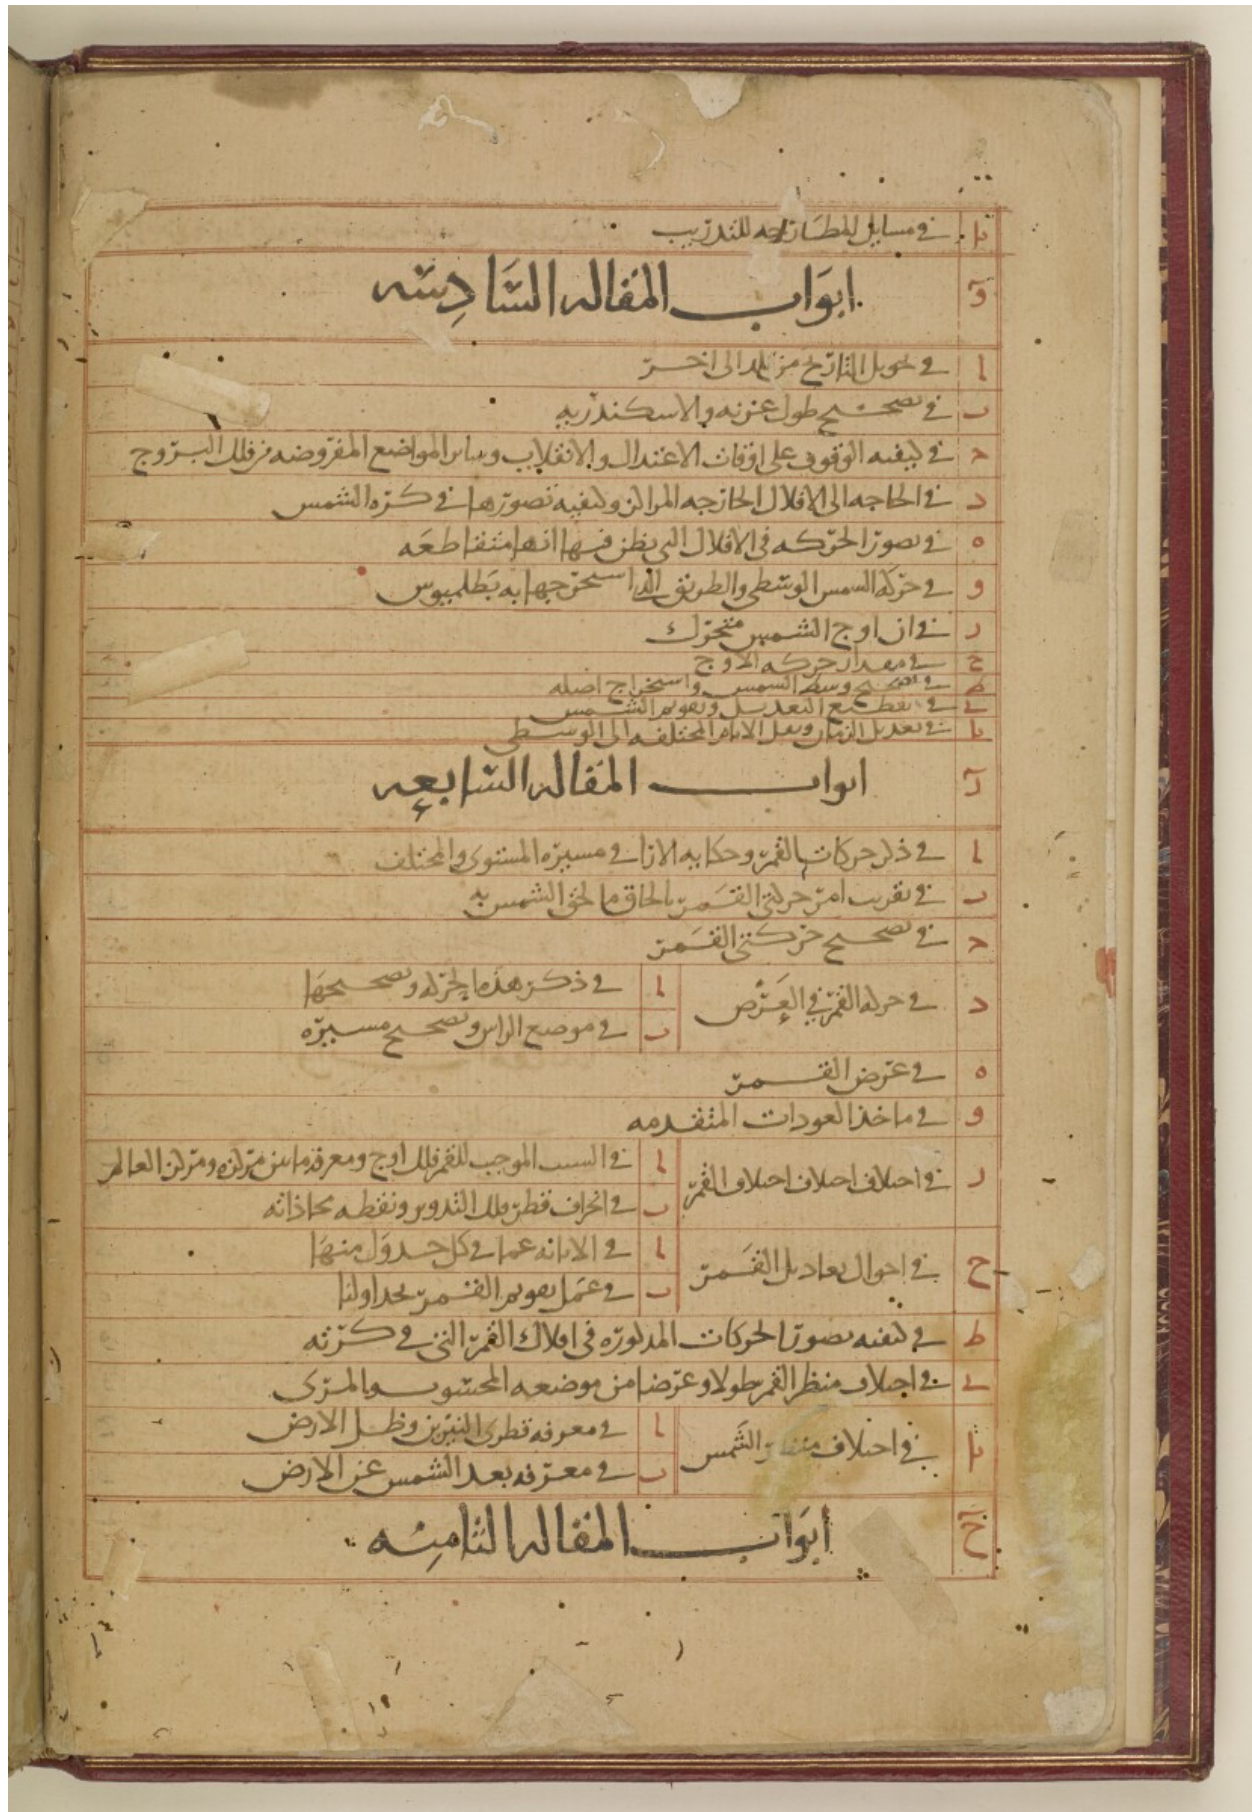 يا في مسايل للمطارحه للتدريب
و ابواب المقاله السادسه
ا في تحويل التاريخ من بلد الى اخر
ب في تصحيح طول غزنه والاسكندريه
ج في كيفيه الوقوف على اوقات الاعتدال والانقلاب وساير المواضع المفروضه من فلك البروج
د في الحاجه الى الافلاك الخارجه المراكز وكيفيه تصورها في كره الشمس
ه في تصور الحركه في الافلاك التي يظن فيها انها متقاطعه
و في حركه الشمس الوسطى والطريق الذي استخرجها به بطلميوس
ز في ان اوج الشمس متحرك
ح في مقدار حركه الاوج
ط في تصحيح وسط الشمس واستخراج اصله
ى في تقطيع التعديل وتقويم الشمس
يا في تعديل الزمان ونقل الايام المختلفه الى الوسطى
ز ابواب المقاله السابعه
ا في ذكر حركات القمر وحكايه الارا في مسيره المستوى والمختلف
ب في تقريب امر حركتي القمر بالحاق ما لحق الشمس به
ج في تصحيح حركتي القمر
د في حركه القمر في العرض
ا في ذكر هذه الحركه وتصحيحها
ب في موضع الراس وتصحيح مسيره
ه في عرض القمر
و في ماخذ العودات المتقدمه
ز في اختلاف اختلاف اختلاف القمر
ا في السبب الموجب للقمر فلك اوج ومعرفه ما بين مركزه ومركز العالم
ب في انحراف قطر فلك التدوير ونقطه محاذاته
ح في احوال تعاديل القمر
ا في الابانه عما في كل جدول منها
ب في عمل تقويم القمر بجداولنا
ط في كيفيه تصور الحركات المذكوره في افلاك القمر التي في كرته
ى في اختلاف منظر القمر طولا وعرضا من موضعه المحسوب والمرى
يا في اختلاف منظر الشمس
ا في معرفه قطرى النيرين وظل الارض
ب في معرفه بعد الشمس عن الارض
ح ابواب المقاله الثامنه